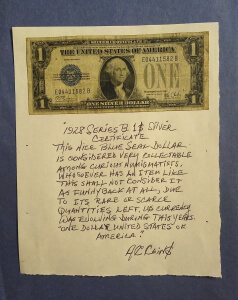 THE UNITED STATES OF AMERICA
E04411582B
ONE
E04411582B
ONE SILVER DOLLAR
"1928 SERIES B 1$ SILVER
CERTIFICATE
THIS NICE BLUE SEAL DOLLAR
IS CONSIDERED VERY COLLECTABLE
AMONG CURIOUS NUMISMATISTS.
WHOSOEVER HAS AN ITEM LIKE
THIS SHALL NOT CONSIDER IT
AS FUNNY BACK AT ALL, DUE
TO ITS RARE OR SCARCE
QUANTITIES LEFT, US CURRENCY
WAS EVOLVING DURING THIS YEARS.
"ONE DOLLAR UNITED STATES OF
AMERICA"